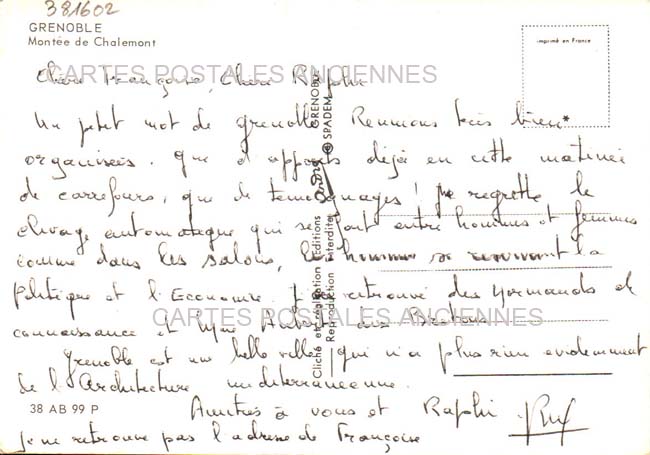 381602
GRENOBLE
Montée de Chalemont
imprimé en France
CARTES POSTALES ANCIENNES
Chère Françoise, Chère Raphi
Un petit mot de Grenoble. Reunions très bien
organisées. que d'apports déjà en cette matinée
de carrefours, que de temoignages! je regrette le
clivage automatique qui se font entre hommes et femmes
comme dans les salons, les hommes se reservant la
Politique et l'Economie. retrouvé des Normands de
connaissance et Aub des Bretons
CARTES POSTALES ANCIENNES
Grenoble est une belle ville qui n'a plus rien evidemment
de l'Architecture mediterraneenne.
38 AB 99 P
Amitiés à vous et Raphi
je ne retrouve pas l'adresse de Françoise
Cliché et réalisation Editions GRENOBLE
Reproduction Interdite SPADEM